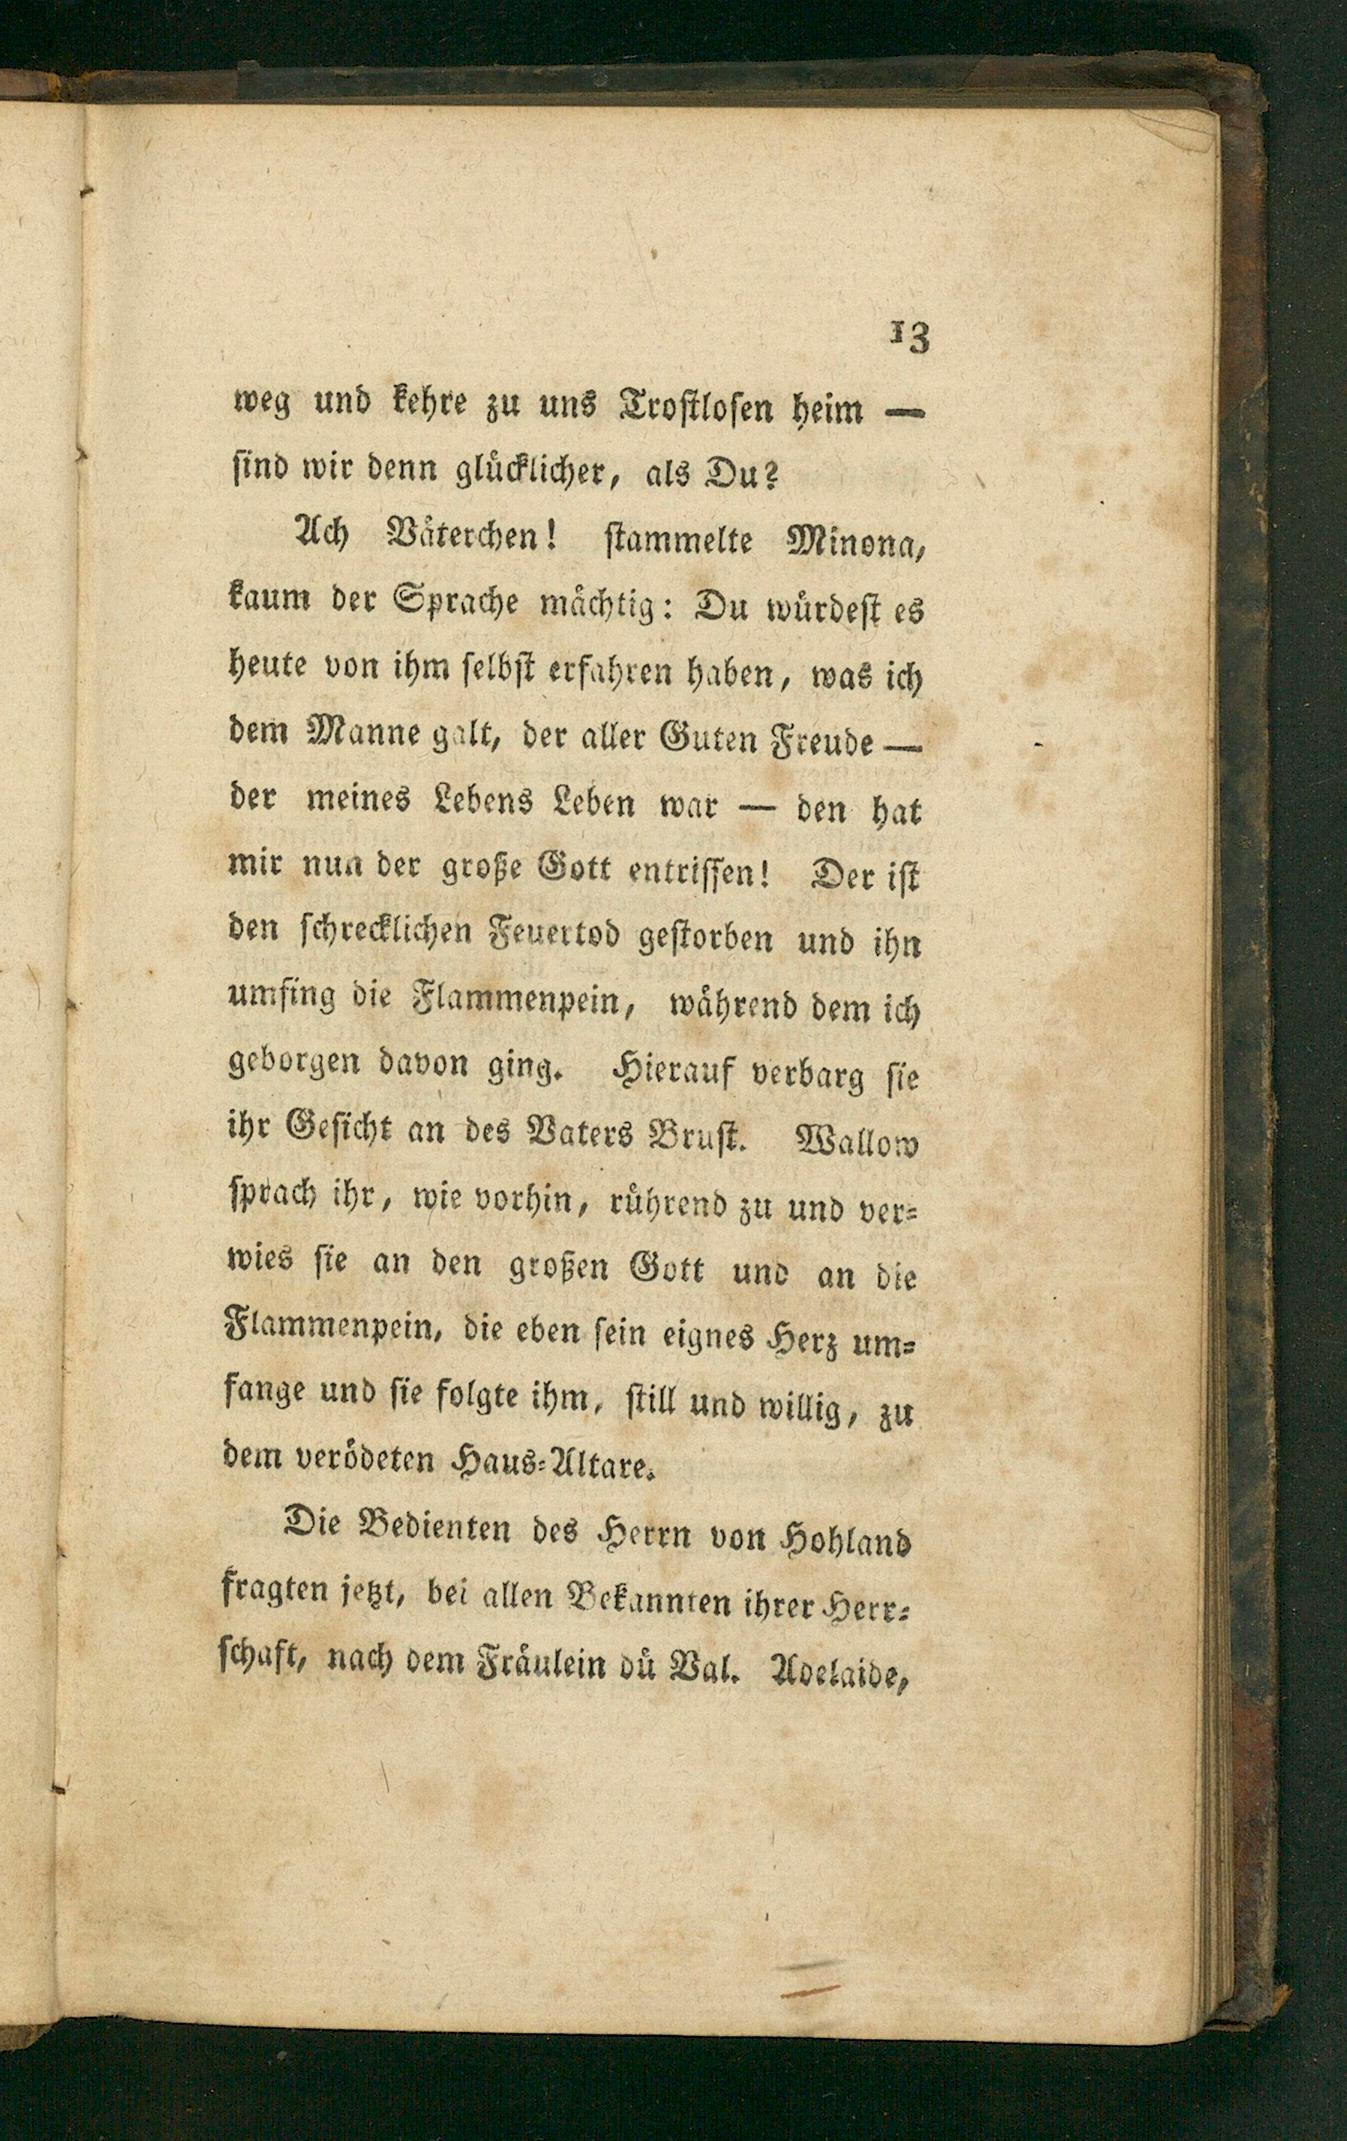 13
weg und kehre zu uns Trostlosen heim —
sind wir denn glücklicher, als Du?
Ach Väterchen! stammelte Minona,
kaum der Sprache mächtig: Du würdest es
heute von ihm selbst erfahren haben, was ich
dem Manne galt, der aller Guten Freude —
der meines Lebens Leben war — den hat
mir nun der große Gott entrissen! Der ist
den schrecklichen Feuertod gestorben und ihn
umfing die Flammenpein, während dem ich
geborgen davon ging. Hierauf verbarg sie
ihr Gesicht an des Vaters Brust. Wallow
sprach ihr, wie vorhin, rührend zu und ver=
wies sie an den großen Gott und an die
Flammenpein, die eben sein eignes Herz um=
fange und sie folgte ihm, still und willig, zu
dem verödeten Haus=Altare.
Die Bedienten des Herrn von Hohland
fragten jetzt, bei allen Bekannten ihrer Herr=
schaft, nach dem Fräulein dü Val. Adelaide,